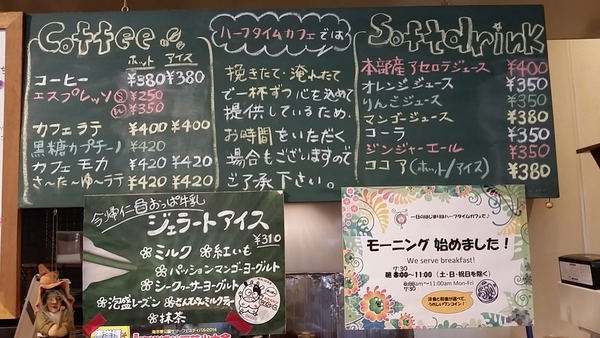 Coffee
ホット アイス
コーヒー ¥380 ¥380
エスプレッソ Ⓢ ¥250
Ⓦ ¥350
カフェラテ ¥400 ¥400
黒糖カプチーノ ¥420
カフェモカ ¥420 ¥420
さ〜た〜ゆ〜ラテ ¥420 ¥420
ハーフタイムカフェでは
挽きたて・淹れたて
で一杯ずつ心を込めて
提供しているため、
お時間をいただく
場合もございますので
ご了承下さい。
Softdrink
本部産アセロラジュース ¥400
オレンジジュース ¥350
りんごジュース ¥350
マンゴージュース ¥380
コーラ ¥350
ジンジャーエール ¥350
ココア(ホット/アイス) ¥380
今帰仁おっぱ牛乳
ジェラートアイス
¥310
ミルク 紅いも
パッションマンゴーヨーグルト
シークヮーサーヨーグルト
泡盛レーズン さんぴんミルクティー
抹茶
一日のはじまりはハーフタイムカフェで♪
モーニング 始めました!
We serve breakfast!
7:30
朝 8:00〜11:00 (土・日・祝日を除く)
7:30
8:00am〜11:00am Mon-Fri
洋食と和食が選べて、
うれしいワンコイン!